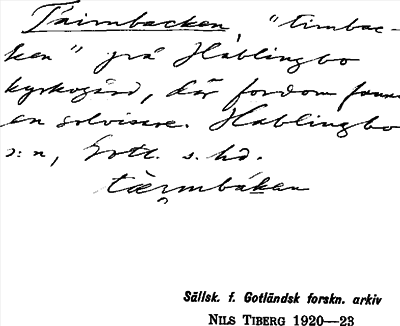 Taimbacken, "timbac-
ken" på Hablingbo
kyrkogård, där fordom fanns
en solvisare. Hablingbo
s:n, Gotl. s. hd.
Sällsk. f. Gotländsk forskn. arkiv
NILS TIBERG 1920—23